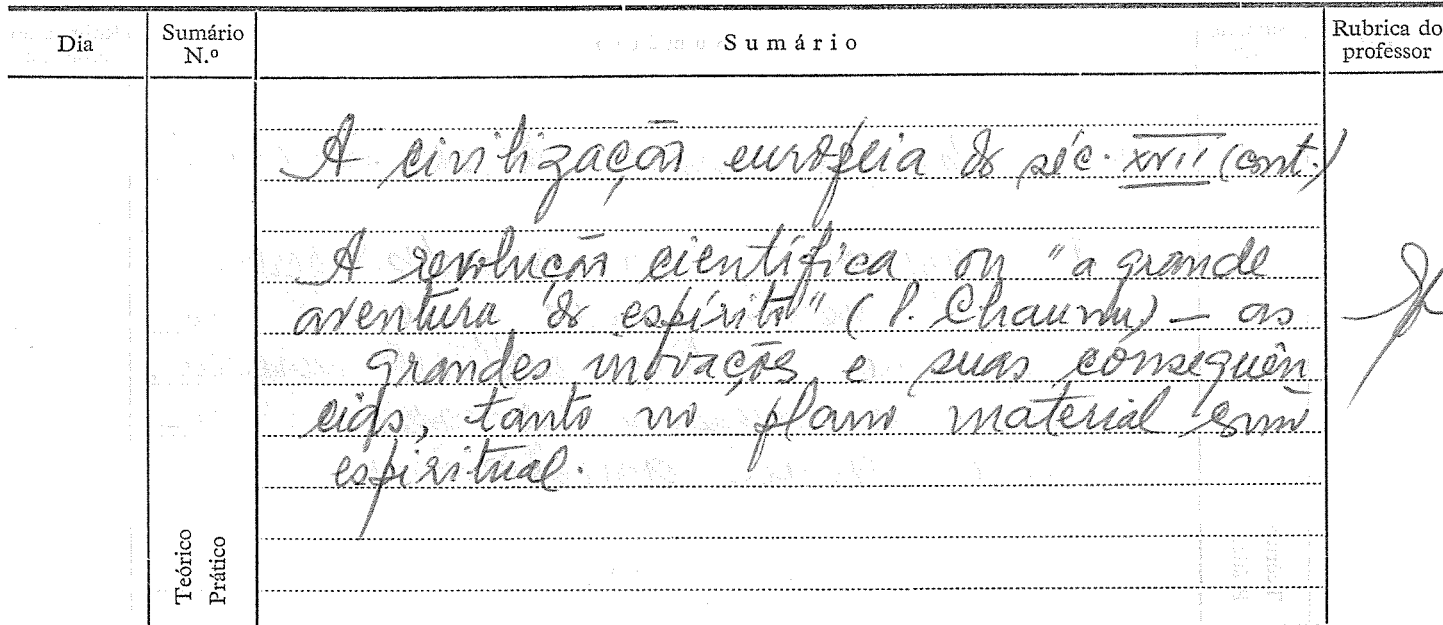 Dia
Sumário
N.º
Sumário
Rubrica do
professor
A civilização européia do séc. XVII (cont.)
A revolução científica ou "a grande
aventura do espírito" (P. Chaunu) — as
grandes inovações e suas consequên
cias, tanto no plano material como
espiritual.
Teórico
Prático